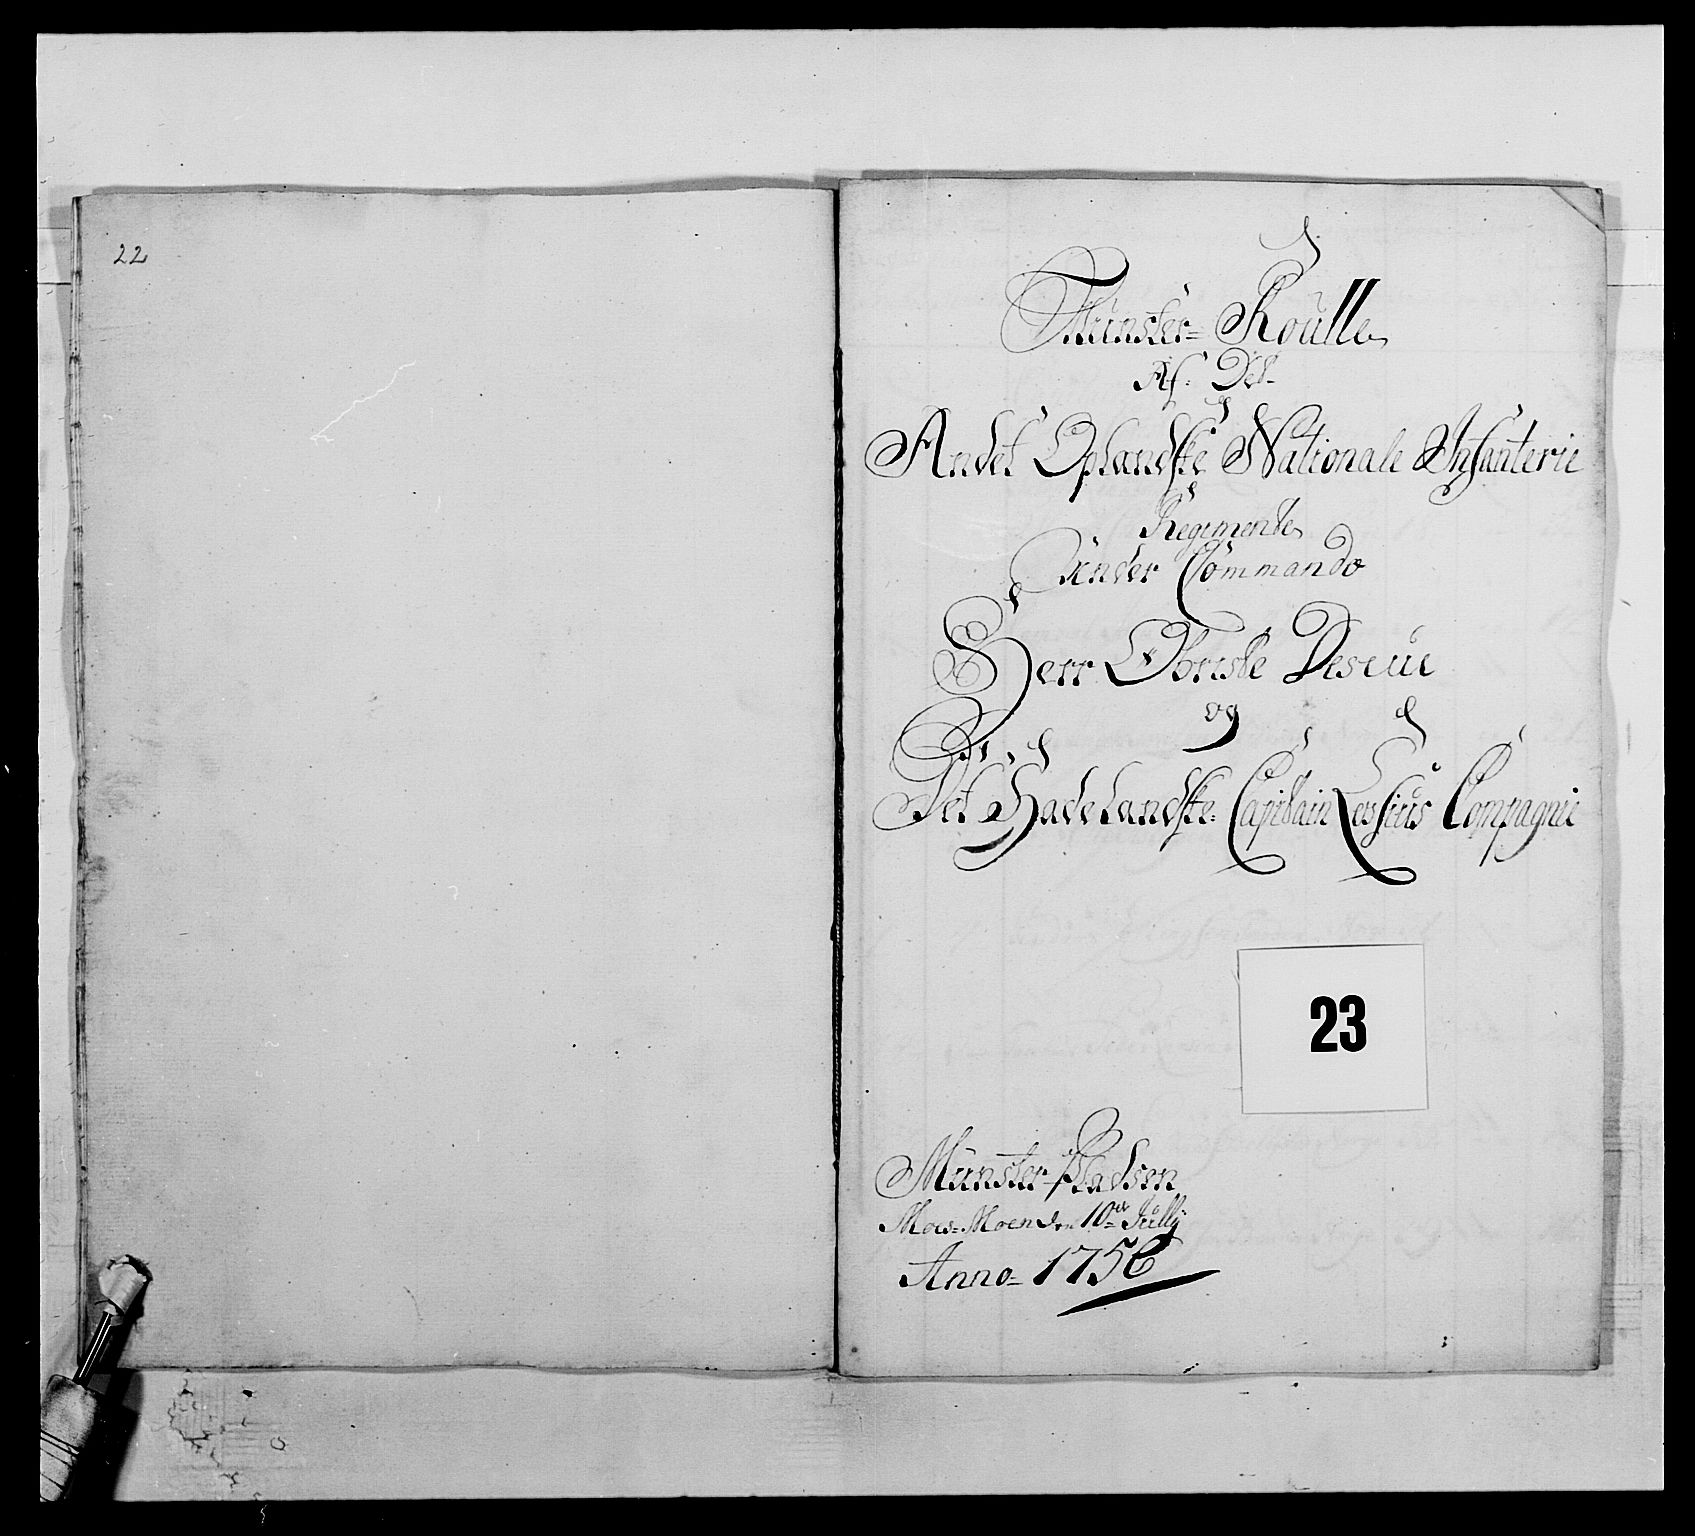 22
Münster= Roulle
Af. Det
Andet Oplandske Nationale Infanterie
Regemente
Under Commando
Herr Obriste Deseüe
og
Det Hadelandske Capitain Lessius Compagnie
23
Münster-Pladsen
Moe-Moen den 10de Jülly
Anno= 1756